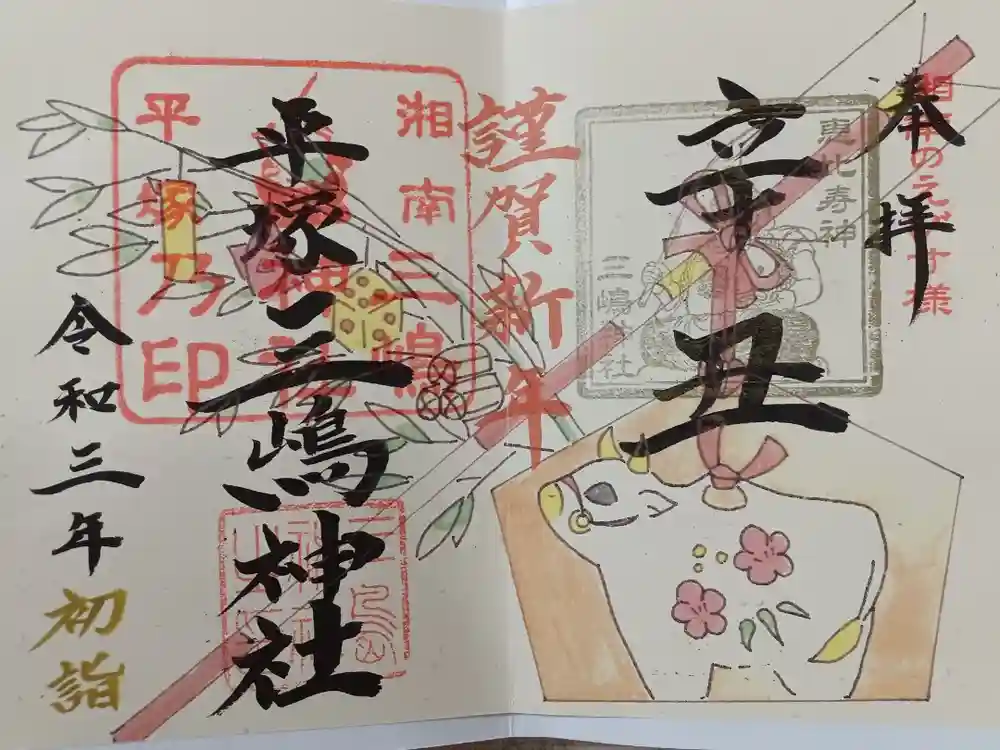 奉拝
湘南のえびす様
辛丑
恵比寿神
三嶋神社
謹賀新年
湘南三嶋
平塚乃印
平塚三嶋神社
令和三年
初詣